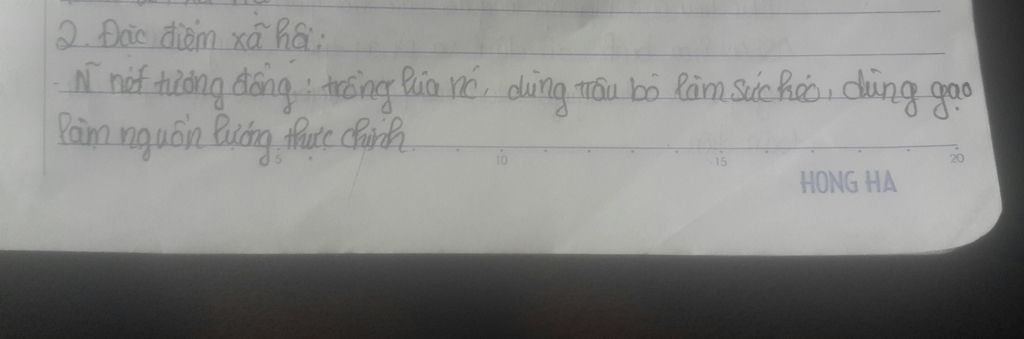 2. Đặc điểm xã hội:
- Ñ nét tương đồng: trồng lúa nc, dùng trâu bò làm sức kéo, dùng gạo
làm nguồn lương thực chính
5 10 15 20
HONG HA